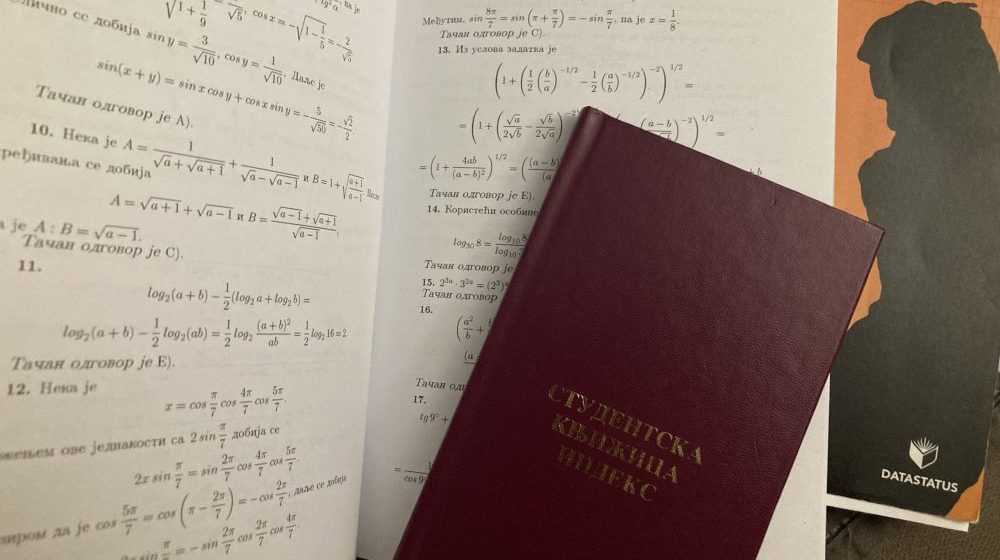 √1 + 1/9
√5
, cos x = −√1 − 1/5 = − 2/√5.
чно се добија sin y = 3/√10, cos y = 1/√10. Даље је
sin(x + y) = sin x cos y + cos x sin y = − 5/√50 = − √2/2.
Тачан одговор је A).
10. Нека је A = 1/(√a + √a + 1) + 1/(√a − √a − 1) и B = 1 + √(a+1)/(a−1). После
ређивања се добија
A = √a + 1 + √a − 1 и B = (√a − 1 + √a+1)/√a − 1.
је A : B = √a − 1.
Тачан одговор је C).
11.
log₂(a + b) − 1/2(log₂ a + log₂ b) =
log₂(a + b) − 1/2 log₂(ab) = 1/2 log₂ (a + b)²/ab = 1/2 log₂ 16 = 2
Тачан одговор је E).
12. Нека је
x = cos π/7 cos 4π/7 cos 5π/7.
жењем ове једнакости са 2 sin π/7 добија се
2x sin π/7 = sin 2π/7 cos 4π/7 cos 5π/7.
зиром да је cos 5π/7 = cos (π − 2π/7) = − cos 2π/7, даље се добија
sin π/7 = − sin 2π/7 cos 2π/7 cos 4π/7
Међутим, sin 8π/7 = sin (π + π/7) = − sin π/7, па је x = 1/8.
Тачан одговор је C).
13. Из услова задатка је
(1 + (1/2 (b/a)^−1/2 − 1/2 (a/b)^−1/2)^−2)^1/2 =
= (1 + (√a/2√b − √b/2√a)^−2
(a − b)^−2)^1/2 =
= (1 + 4ab/(a − b)²)^1/2 = ((a − b)
+ b
Тачан одговор је E).
14. Користећи особине
log₃₀ 8 = log₁₀ 8/log₁₀
Тачан одговор је
15. 2^3a · 3^2a = (2³)^a
Тачан одговор
16.
(a²/b +
(a
Тачан од
17.
tg 9° +
= 1/cos 9°
СТУДЕНТСКА
КЊИЖИЦА
ИНДЕКС
DATASTATUS